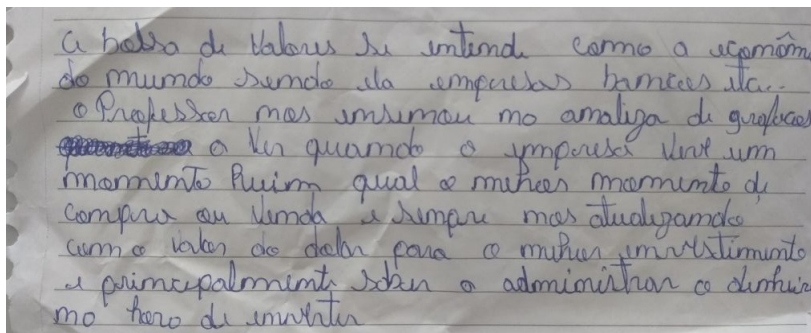 A bolsa de Valores se entende como a econôm
do mundo sendo ela empresas bancos etc..
o Professor nos ensinou no analiza de graficos
a Ver quando a ympresa Vive um
momento Ruim qual o mihor momento de
compra ou Venda e sempre nos atualizando
com o valor do dolar para o mihor investimento
e principalmente saber a administrar o dinheir
no hora de inverter